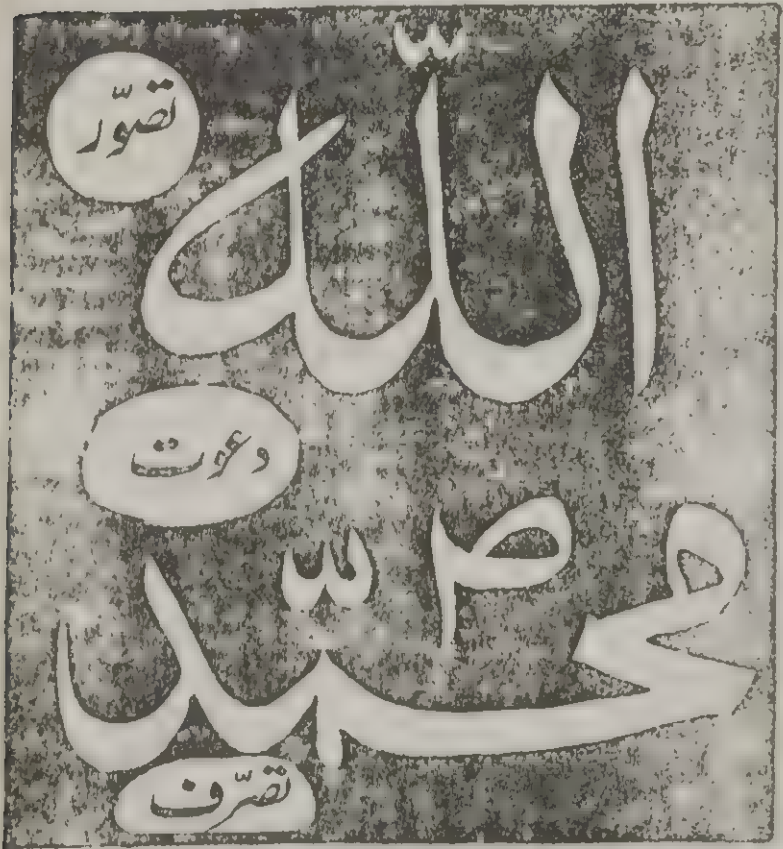 تصوّر
اللّه
دعوت
محمّد ؐ
تصرّف